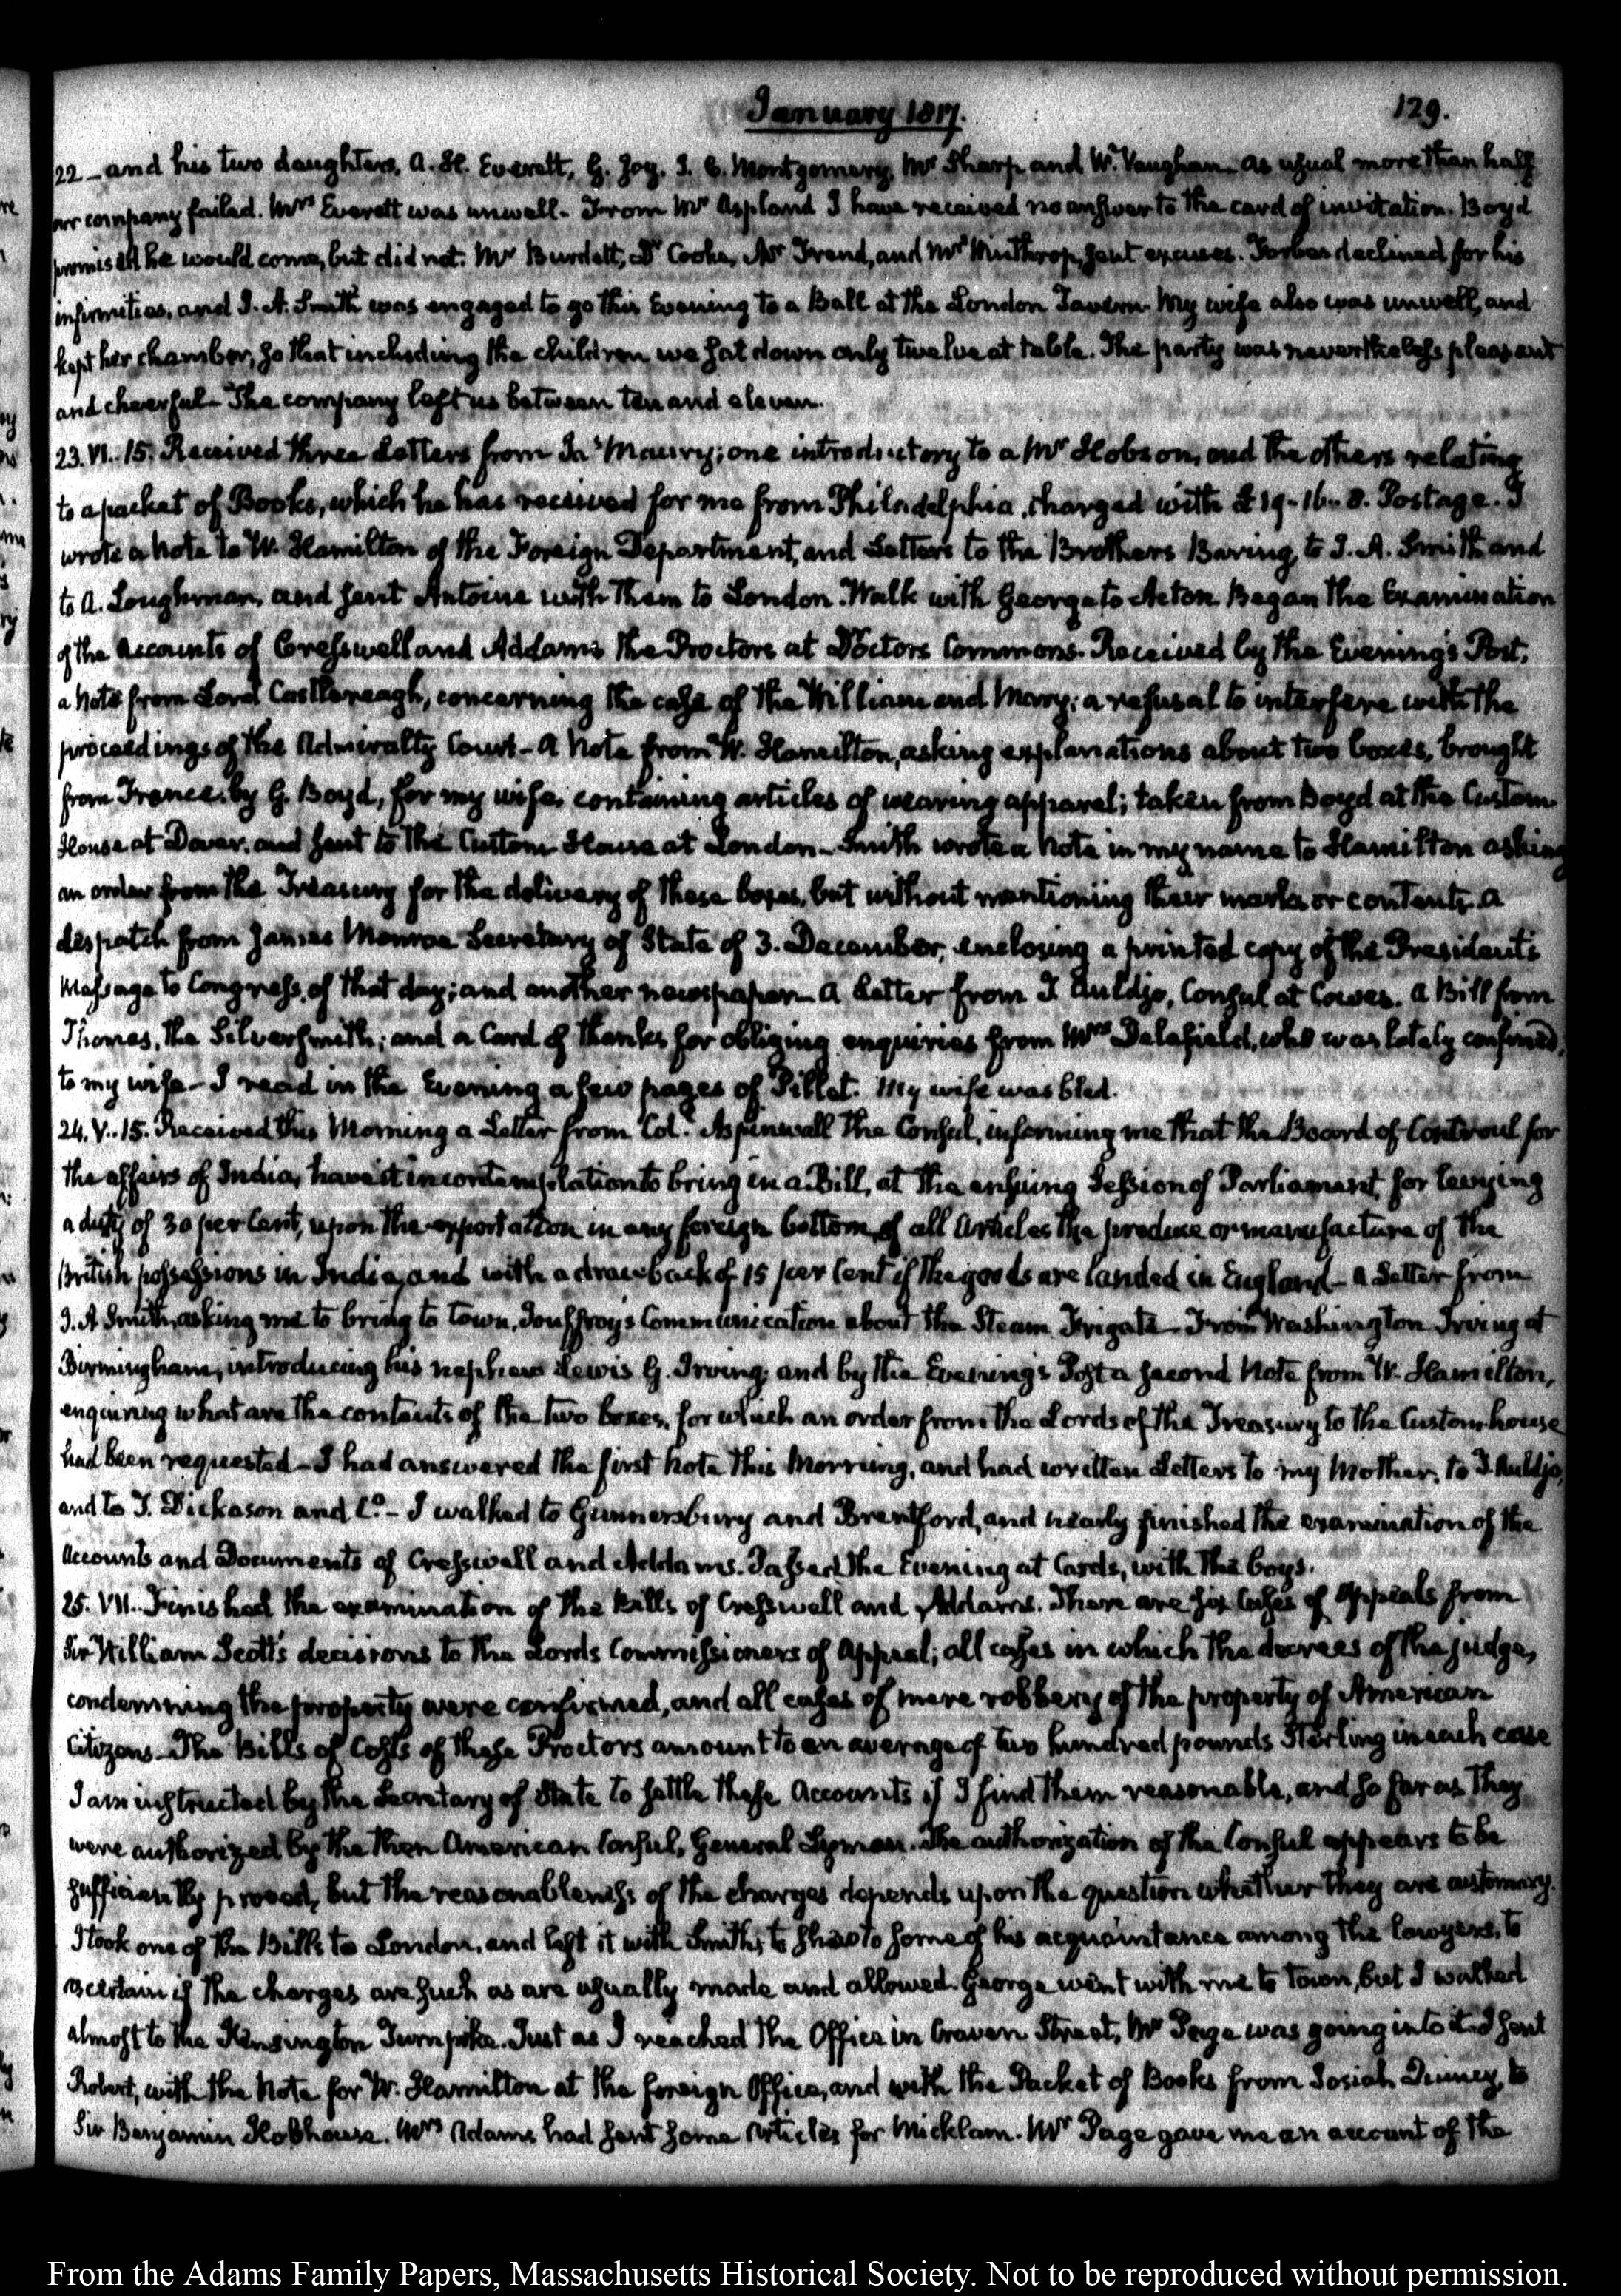 January 1817.
129.
22 — and his two daughters, A. H. Everett, G. Joy, J. C. Montgomery, Mr Sharp and W. Vaughan. As usual more than half
our company failed. Mrs Everett was unwell. From Mr Aspland I have received no answer to the card of invitation. Boyd
promised he would come, but did not. Mr Burdett, Dr Cooke, Mr Frend, and Mrs Winthrop, sent excuses. Forbes declined for his
infirmities, and J. A. Smith was engaged to go this Evening to a Ball at the London Tavern. My wife also was unwell, and
kept her chamber, so that including the children we sat down only twelve at table. The party was nevertheless pleasant
and cheerful — The company left us between ten and eleven.
23. VI..15. Received three Letters from Js Maury; one introductory to a Mr Hobson, and the others relating
to a packet of Books, which he has received for me from Philadelphia, charged with £19-16..8. Postage. I
wrote a Note to W. Hamilton of the Foreign Department, and Letters to the Brothers Baring, to J. A. Smith and
to A. Loughnan, and sent Antoine with them to London. Walk with George to Acton. Began the Examination
of the Accounts of Cresswell and Addams the Proctors at Doctors Commons. Received by the Evening's Post,
a Note from Lord Castlereagh, concerning the case of the William and Mary; a refusal to interfere with the
proceedings of the Admiralty Court — A Note from W. Hamilton, asking explanations about two boxes, brought
from France, by G. Boyd, for my wife, containing articles of wearing apparel; taken from Boyd at the Custom
House at Dover, and sent to the Custom House at London — Smith wrote a Note in my name to Hamilton asking
an order from the Treasury for the delivery of these boxes, but without mentioning their marks or contents. A
despatch from James Monroe Secretary of State of 3. December, enclosing a printed copy of the President's
Message to Congress, of that day; and another newspaper — A Letter from J. Auldjo, Consul at Cowes. A Bill from
Thomas, the Silversmith; and a Card of thanks for obliging enquiries from Mrs Delafield, who was lately confined,
to my wife — I read in the Evening a few pages of Pillet. My wife was bled.
24. V..15. Received this Morning a Letter from Col. Aspinwall the Consul, informing me that the Board of Controul for
the affairs of India, have it in contemplation to bring in a Bill, at the ensuing Session of Parliament, for levying
a duty of 30 per Cent, upon the exportation in any foreign bottom, of all Articles the produce or manufacture of the
British possessions in India, and with a drawback of 15 per Cent if the goods are landed in England — A Letter from
J. A Smith, asking me to bring to town, Jouffroy's Communication about the Steam Frigate — From Washington Irving at
Birmingham, introducing his nephew Lewis G. Irving; and by the Evening's Post a second Note from W. Hamilton,
enquiring what are the contents of the two boxes, for which an order from the Lords of the Treasury to the Custom-house
had been requested — I had answered the first Note this Morning, and had written Letters to my Mother, to J. Auldjo,
and to T. Dickason and Co. — I walked to Gunnersbury and Brentford, and nearly finished the examination of the
Accounts and Documents of Cresswell and Addams. Passed the Evening at Cards, with the boys.
25. VII.. Finished the examination of the Bills of Cresswell and Addams. There are six Cases of Appeals from
Sir William Scott's decisions to the Lords Commissioners of Appeal; all cases in which the decrees of the judge,
condemning the property were confirmed, and all cases of mere robbery of the property of American
Citizens — The Bills of Costs of these Proctors amount to an average of two hundred pounds Sterling in each case
I am instructed by the Secretary of State to settle these Accounts if I find them reasonable, and so far as they
were authorized by the then American Consul, General Lyman. The authorization of the Consul appears to be
sufficiently proved, but the reasonableness of the charges depends upon the question whether they are customary.
I took one of the Bills to London, and left it with Smith, to shew to some of his acquaintance among the lawyers, to
ascertain if the charges are such as are usually made and allowed. George went with me to town, but I walked
almost to the Kensington Turnpike. Just as I reached the Office in Craven Street, Mr Page was going into it. I sent
Robert, with the Note for W. Hamilton at the foreign Office, and with the Packet of Books from Josiah Quincy, to
Sir Benjamin Hobhouse. Mrs Adams had sent some Articles for Micklam. Mr Page gave me an account of the
From the Adams Family Papers, Massachusetts Historical Society. Not to be reproduced without permission.